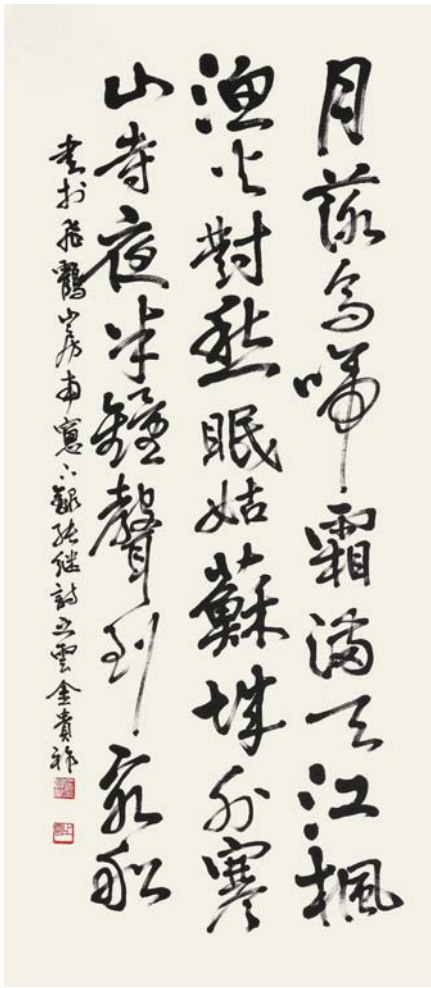 月落烏啼霜滿天江楓
漁火對愁眠姑蘇城外寒
山寺夜半鐘聲到客船
書於飛鶴山房南窗下錄張继詩上雲金貴祚